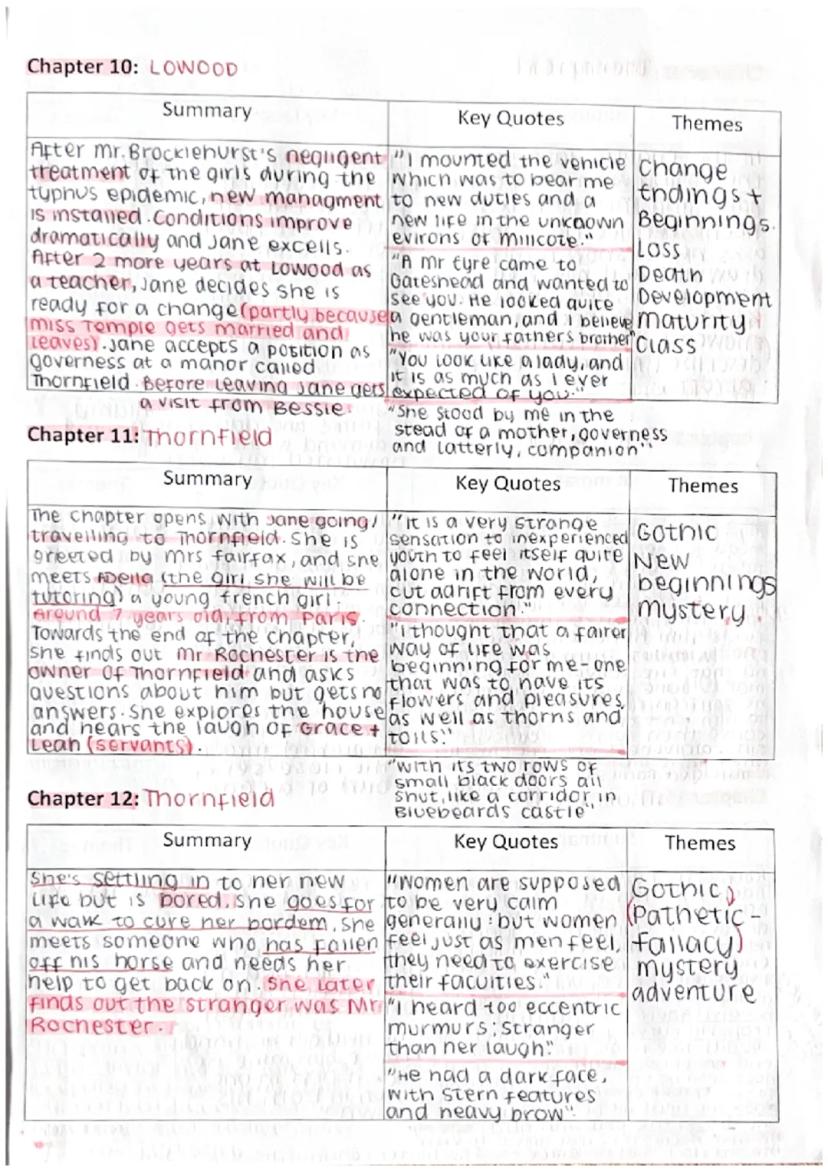 Chapter 10: LOWOOD
Summary
Key Quotes
Themes
After Mr. Brocklehurst's negligent
treatment of the girls during the
typhus epidemic, new managment
is installed. Conditions improve
dramatically and Jane excells.
After 2 more years at Lowood as
a teacher, Jane decides she is
ready for a change (partly because
miss Temple gets married and
leaves). Jane accepts a position as
governess at a manor called
Thornfield. Before leaving Jane gets
a visit from Bessie.
"I mounted the vehicle
which was to bear me
to new duties and a
new life in the unknown
evirons of Millcote."
"A Mr Eyre came to
Gateshead and wanted to
see you. He looked quite
a gentleman, and I believe
he was your fathers brother"
"You look like a lady, and
it is as much as I ever
expected of you."
"She stood by me in the
stead of a mother, governess
and latterly, companion"
Change
Endings +
Beginnings.
Loss
Death
Development
maturity
Class
Chapter 11: Thornfield
Summary
Key Quotes
Themes
The chapter opens with Jane going/
travelling to Thornfield. She is
greeted by Mrs fairfax, and she
meets Adella (the girl she will be
tutoring) a young french girl
around 7 years old, from Paris.
Towards the end of the chapter,
she finds out Mr Rochester is the
owner of Thornfield and asks
questions about him but gets no
answers. She explores the house
and hears the laugh of Grace +
Leah (servants).
"It is a very strange
sensation to inexperienced
youth to feel itself quite
alone in the world,
cut adrift from every
connection."
"I thought that a fairer
way of life was
beginning for me - one
that was to have its
flowers and pleasures,
as well as thorns and
toils."
"with its two rows of
small black doors all
shut, like a corridor in
Bluebeards castle"
Gothic
New
beginnings
mystery
Chapter 12: Thornfield
Summary
Key Quotes
Themes
She's settling in to her new
life but is bored. She goes for
a walk to cure her bordem. She
meets someone who has fallen
off his horse and needs her
help to get back on. She later
finds out the stranger was Mr
Rochester.
"Women are supposed
to be very calm
generally: but women
feel just as men feel,
they need to exercise
their faculties."
"I heard too eccentric
murmurs: Stranger
than her laugh."
"He had a dark face,
with stern features
and heavy brow".
Gothic
(Pathetic-
fallacy)
mystery
adventure